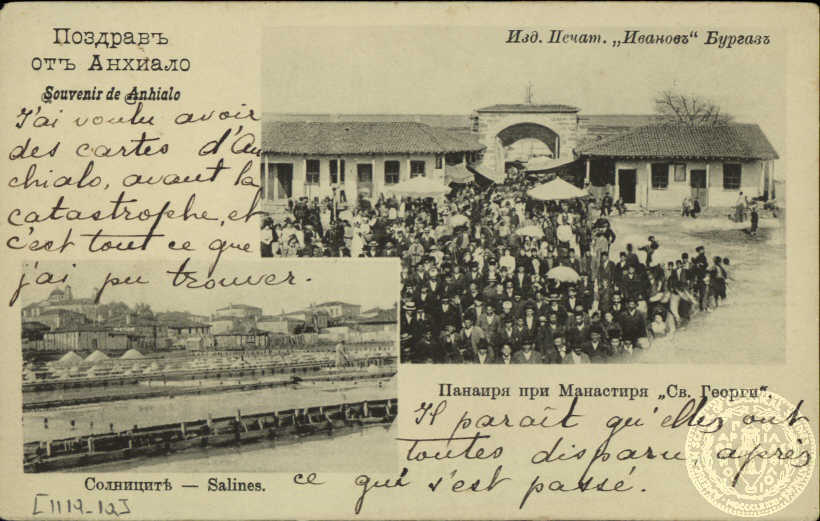 Поздравъ
отъ Анхиало
Souvenir de Anhialo
Изд. Печат. „Ивановъ“ Бургазъ
J'ai voulu avoir
des cartes d'An
chialo, avant la
catastrophe, et
c'est tout ce que
j'ai pu trouver.
Панаиря при Манастиря „Св. Георги“.
Il paraît qu'elles ont
toutes disparu, après
ce qui s'est passé.
Солницитѣ — Salines.
[1119-19]